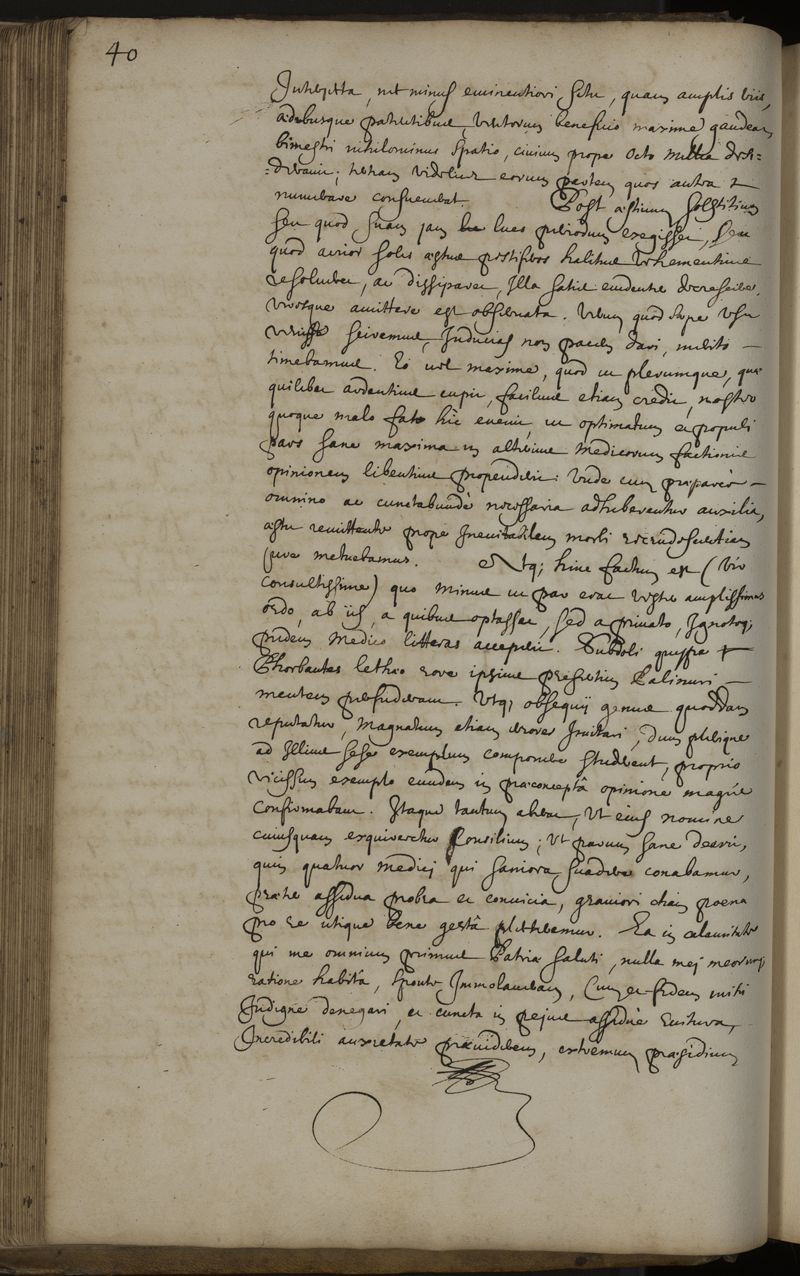 40
Interjecta, nec minus eminentiori situ, quam amplis viis,
aedibusque patentibus, ventorum beneficio maxime gaudeant
bimestri nihilominus spatio, civium prope octo millia desi=
=deravit; tertiam videlicet eorum partem, quos antea
numerare consueverat. Post aestivum solstitium
seu quod suam jam lues periodum exegisset, seu
quod acrior solis aestus pestiferos halitus vehementius
resolveret, ac dissiparet, illa satis evidenter decrescere,
viresque amittere est observata. Verum quod saepe usu
scivimus, Inducias non pacem dari, merito
timebamus. Eo vel maxime, quod ut plerumque, quae
quilibet ardentius cupit, facilius etiam credit, nostro
quoque malo fato hic evenit, ut optimatum et populi
pars sane maxima in alterius medicorum factionis
opinionem libentius propenderit: Unde cum praeparcè
omnino ac cunctabundè necessaria adhiberentur auxilia,
aestu remittente prope Inevitabilem morbi recrudescentiam
jure metuebamus. Atq; hinc factum est (Vir
Consultissime) quo minus ut par erat vester amplissimus
ordo, ab iis, a quibus optasset, sed a privato, Ignotoq;
pridem medico litteras acceperit. Subdoli quippe
Phorbantes lethaeo rore ipsius praesentium Palinuri
mentem perfuderant. Utq; obsequii genus quoddam
reputatur, Magnatum etiam errores Imitari, dum plerique
ad Illius sese exemplum componere studerent, proprio
vicissim exemplo eundem in praeconceptâ opinione magis
confirmabant. Itaque tantum aberat, Ut eius nomine
cuiusquam exquireretur Consilium; Ut parum sane deerit,
quin quatuor medicj qui saniora suadere conabamur,
praeter assidua probra et convicia, graviori etiam poena
pro re utique bene gestâ plecteremur. Ea in calamitate
qui me omnium primus Patriae saluti, nulla mej meorumq;
ratione habita, sponte Immolaveram, Cum et fidem mihi
Indigne denegari, et cuncta in pejus assiduè ruitura,
Incredibili anxietate praeviderem, extremum praesidium